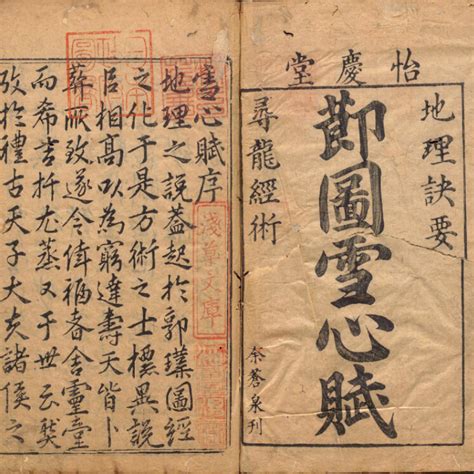 怡慶堂
地理訣要
莭圖雪心賦
尋龍經術
余蒼泉刊
雪心賦序
地理之說蓋起於郭璞圖經
之化于是方術之士標異說
相高以為窮達壽夭皆卜
葬所致遂令徼福者舍靈
而希吉扞尤蒸又于世云
攷於禮古天子大夫諸侯之
淺草文庫